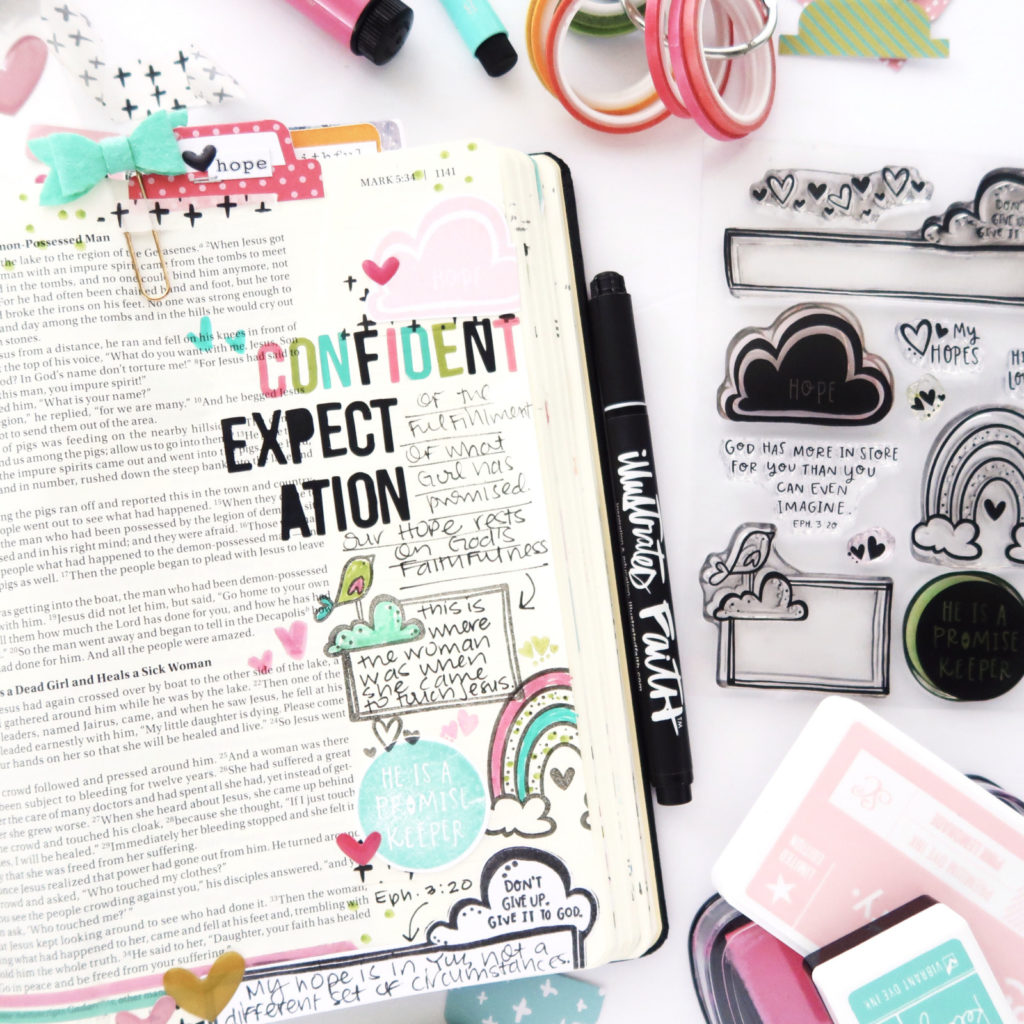 hope
ithful
MARK 5:34 | 1141
HOPE
mon-Possessed Man
the lake to the region of the Gerasenes. 2When Jesus got
man with an impure spirit came from the tombs to meet
d in the tombs, and no one could bind him anymore, not
For he had often been chained hand and foot, but he tore
broke the irons on his feet. No one was strong enough to
and day among the tombs and in the hills he would cry out
stones.
sus from a distance, he ran and fell on his knees in front of
the top of his voice, "What do you want with me, Jesus, Son
od? In God's name don't torture me!" For Jesus had said to
this man, you impure spirit!"
ked him, "What is your name?"
egion," he replied, "for we are many." 10And he begged Jesus
not to send them out of the area.
of pigs was feeding on the nearby hillside.
nd us among the pigs; allow us to go into them."
the impure spirits came out and went into the pigs.
and in number, rushed down the steep bank into the
ng the pigs ran off and reported this in the town and country
eople went out to see what had happened. 15When they came
the man who had been possessed by the legion of demons,
ssed and in his right mind; and they were afraid. 16Those
ad what had happened to the demon-possessed man
pigs as well. 17Then the people began to plead with Jesus to leave
was getting into the boat, the man who had been demon-possessed
with him. 19Jesus did not let him, but said, "Go home to your own
ll them how much the Lord has done for you, and how he has
20So the man went away and began to tell in the Decapolis how
ad done for him. And all the people were amazed.
s a Dead Girl and Heals a Sick Woman
Jesus had again crossed over by boat to the other side of the lake, a
d gathered around him while he was by the lake. 22Then one of the
leaders, named Jairus, came, and when he saw Jesus, he fell at his
leaded earnestly with him, "My little daughter is dying. Please come
ur hands on her so that she will be healed and live." 24So Jesus went
crowd followed and pressed around him. 25And a woman was there
been subject to bleeding for twelve years. 26She had suffered a great
r the care of many doctors and had spent all she had, yet instead of get-
r she grew worse. 27When she heard about Jesus, she came up behind
e crowd and touched his cloak, 28because she thought, "If I just touch
es, I will be healed." 29Immediately her bleeding stopped and she felt in
y that she was freed from her suffering.
nce Jesus realized that power had gone out from him. He turned around
crowd and asked, "Who touched my clothes?"
ou see the people crowding against you," his disciples answered, "and
n ask, 'Who touched me?'"
ut Jesus kept looking around to see who had done it. 33Then the woman,
ing what had happened to her, came and fell at his feet and, trembling with
old him the whole truth. 34He said to her, "Daughter, your faith has healed
Go in peace and be freed from your suffering."
CONFIDENT
EXPECT
ATION
of the
Fulfillment
of what
God has
promised.
our Hope rests
on God's
Faithfulness
this is
where
the woman
was when
she came
to touch Jesus.
HE IS A
PROMISE
KEEPER
Eph. 3:20
DON'T
GIVE UP.
GIVE IT TO GOD.
My hope is in You, not a
different set of circumstances.
illustrated Faith™
DON'T
GIVE U
GIVE IT
HOPE
My
HOPES
GOD HAS MORE IN STORE
FOR YOU THAN YOU
CAN EVEN
IMAGINE.
EPH. 3:20
HE IS A
PROMISE
KEEPER
VIBRANT DYE INK